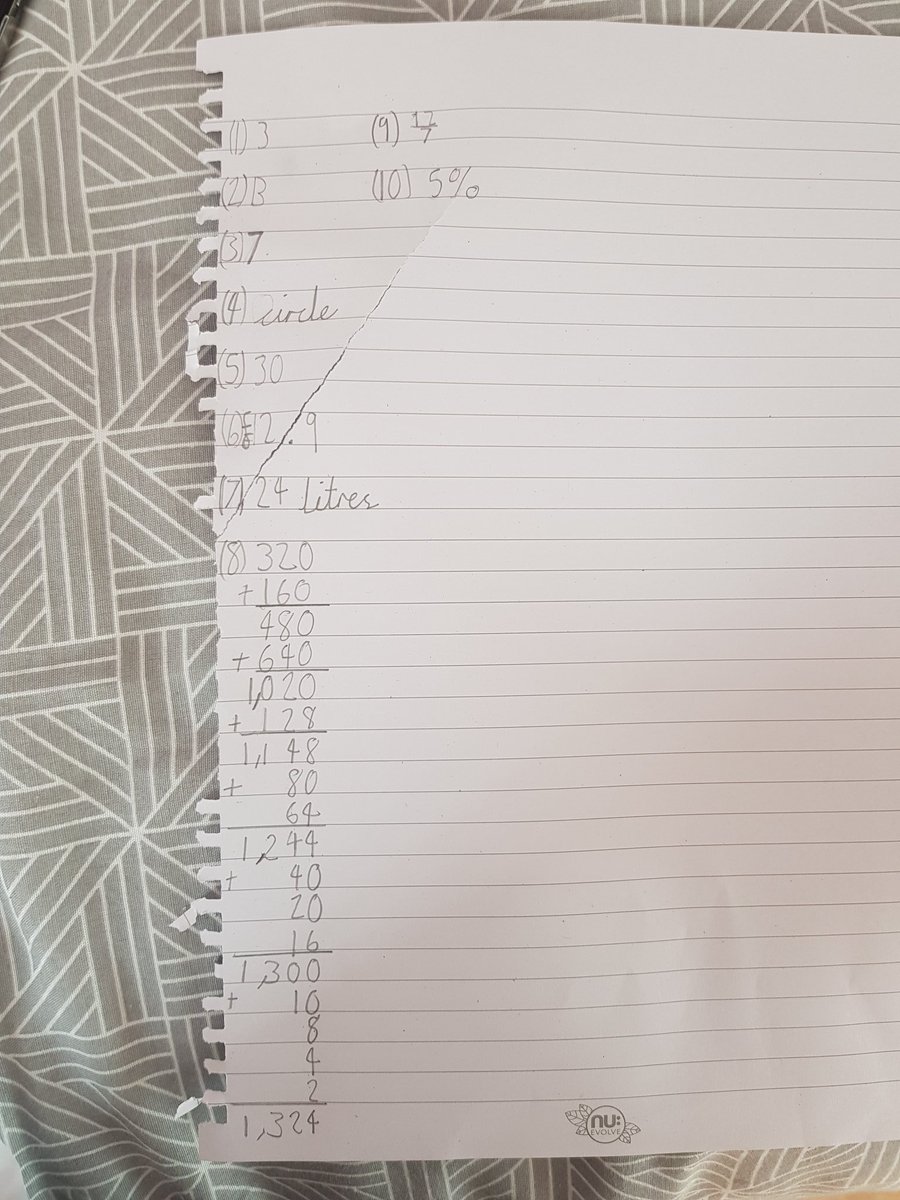 (1) 3
(2) B
(3) 7
(4) circle
(5) 30
(6) 12.9
(7) 24 Litres
(8) 320
+ 160
480
+ 640
1,020
+ 128
1,148
+ 80
64
1,244
+ 40
20
16
1,300
+ 10
8
4
2
1,324
(9) 17/7
(10) 5%
nu:
EVOLVE